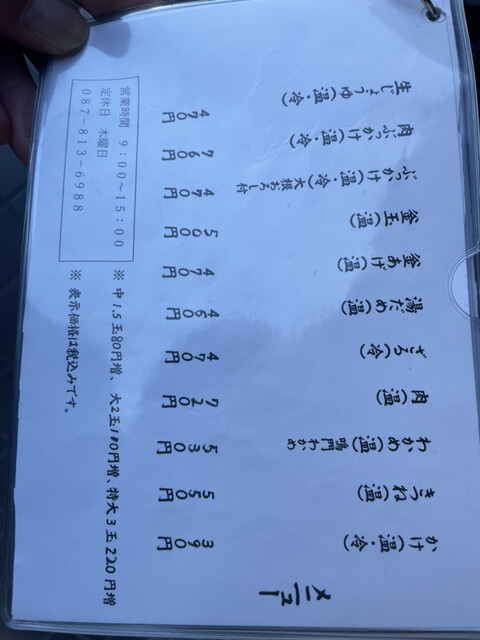 メニュー
かけ(温・冷) 390円
きつね(温) 550円
わかめ(温)鳴門わかめ 530円
肉(温) 720円
ざる(冷) 470円
湯だめ(温) 460円
釜あげ(温) 470円
釜玉(温) 500円
ぶっかけ(温・冷)大根おろし付 470円
肉ぶっかけ(温・冷) 760円
生じょうゆ(温・冷) 470円
※ 中1.5玉80円増、大2玉110円増、特大3玉220円増
※ 表示価格は税込みです。
営業時間 9:00〜15:00
定休日 木曜日
087-813-6988